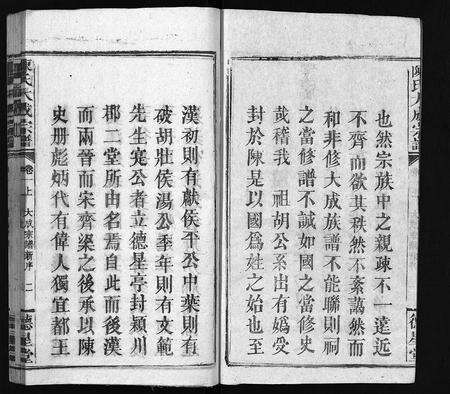 陳氏大成宗譜
也然宗族中之親疎不一遠近
不齊而欲其秩然不紊藹然而
和非修大成族譜不能聯則祠
之當修譜不誠如國之當修史
哉稽我 祖胡公系出有媯受
封於陳是以國爲姓之始也至
德星堂
漢初則有獻侯平公中葉則有
破胡壯侯湯公季年則有文範
先生寔公者立德星亭封潁川
郡二堂所由名焉自此而後漢
而兩晉而宋齊梁之後承以陳
史册彪炳代有偉人獨宜都王
陳氏大成宗譜
卷上 大成宗譜新序 二
德星堂